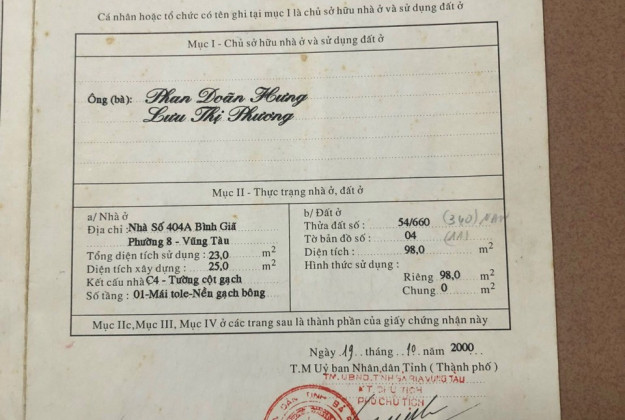 Cá nhân hoặc tổ chức có tên ghi tại mục I là chủ sở hữu nhà ở và sử dụng đất ở
Mục I - Chủ sở hữu nhà ở và sử dụng đất ở
Ông (bà): Phan Doãn Hưng
Lưu Thị Phương
Mục II - Thực trạng nhà ở, đất ở
a/ Nhà ở
Địa chỉ : Nhà Số 404A Bình Giã
Phường 8 - Vũng Tàu
Tổng diện tích sử dụng : 23,0 m2
Diện tích xây dựng : 25,0 m2
Kết cấu nhà C4 - Tường cột gạch
Số tầng : 01-Mái tole-Nền gạch bông
b/ Đất ở
Thửa đất số : 54/660 (340)
Tờ bản đồ số : 04
Diện tích : 98,0 m2
Hình thức sử dụng :
Riêng 98,0 m2
Chung 0 m2
Mục IIc, Mục III, Mục IV ở các trang sau là thành phần của giấy chứng nhận này
Ngày 19 tháng 10 năm 2000
T.M Uỷ ban Nhân dân Tỉnh ( Thành phố )
TM. UBND. TỈNH BÀ RỊA VŨNG TÀU
KT. CHỦ TỊCH
PHÓ CHỦ TỊCH